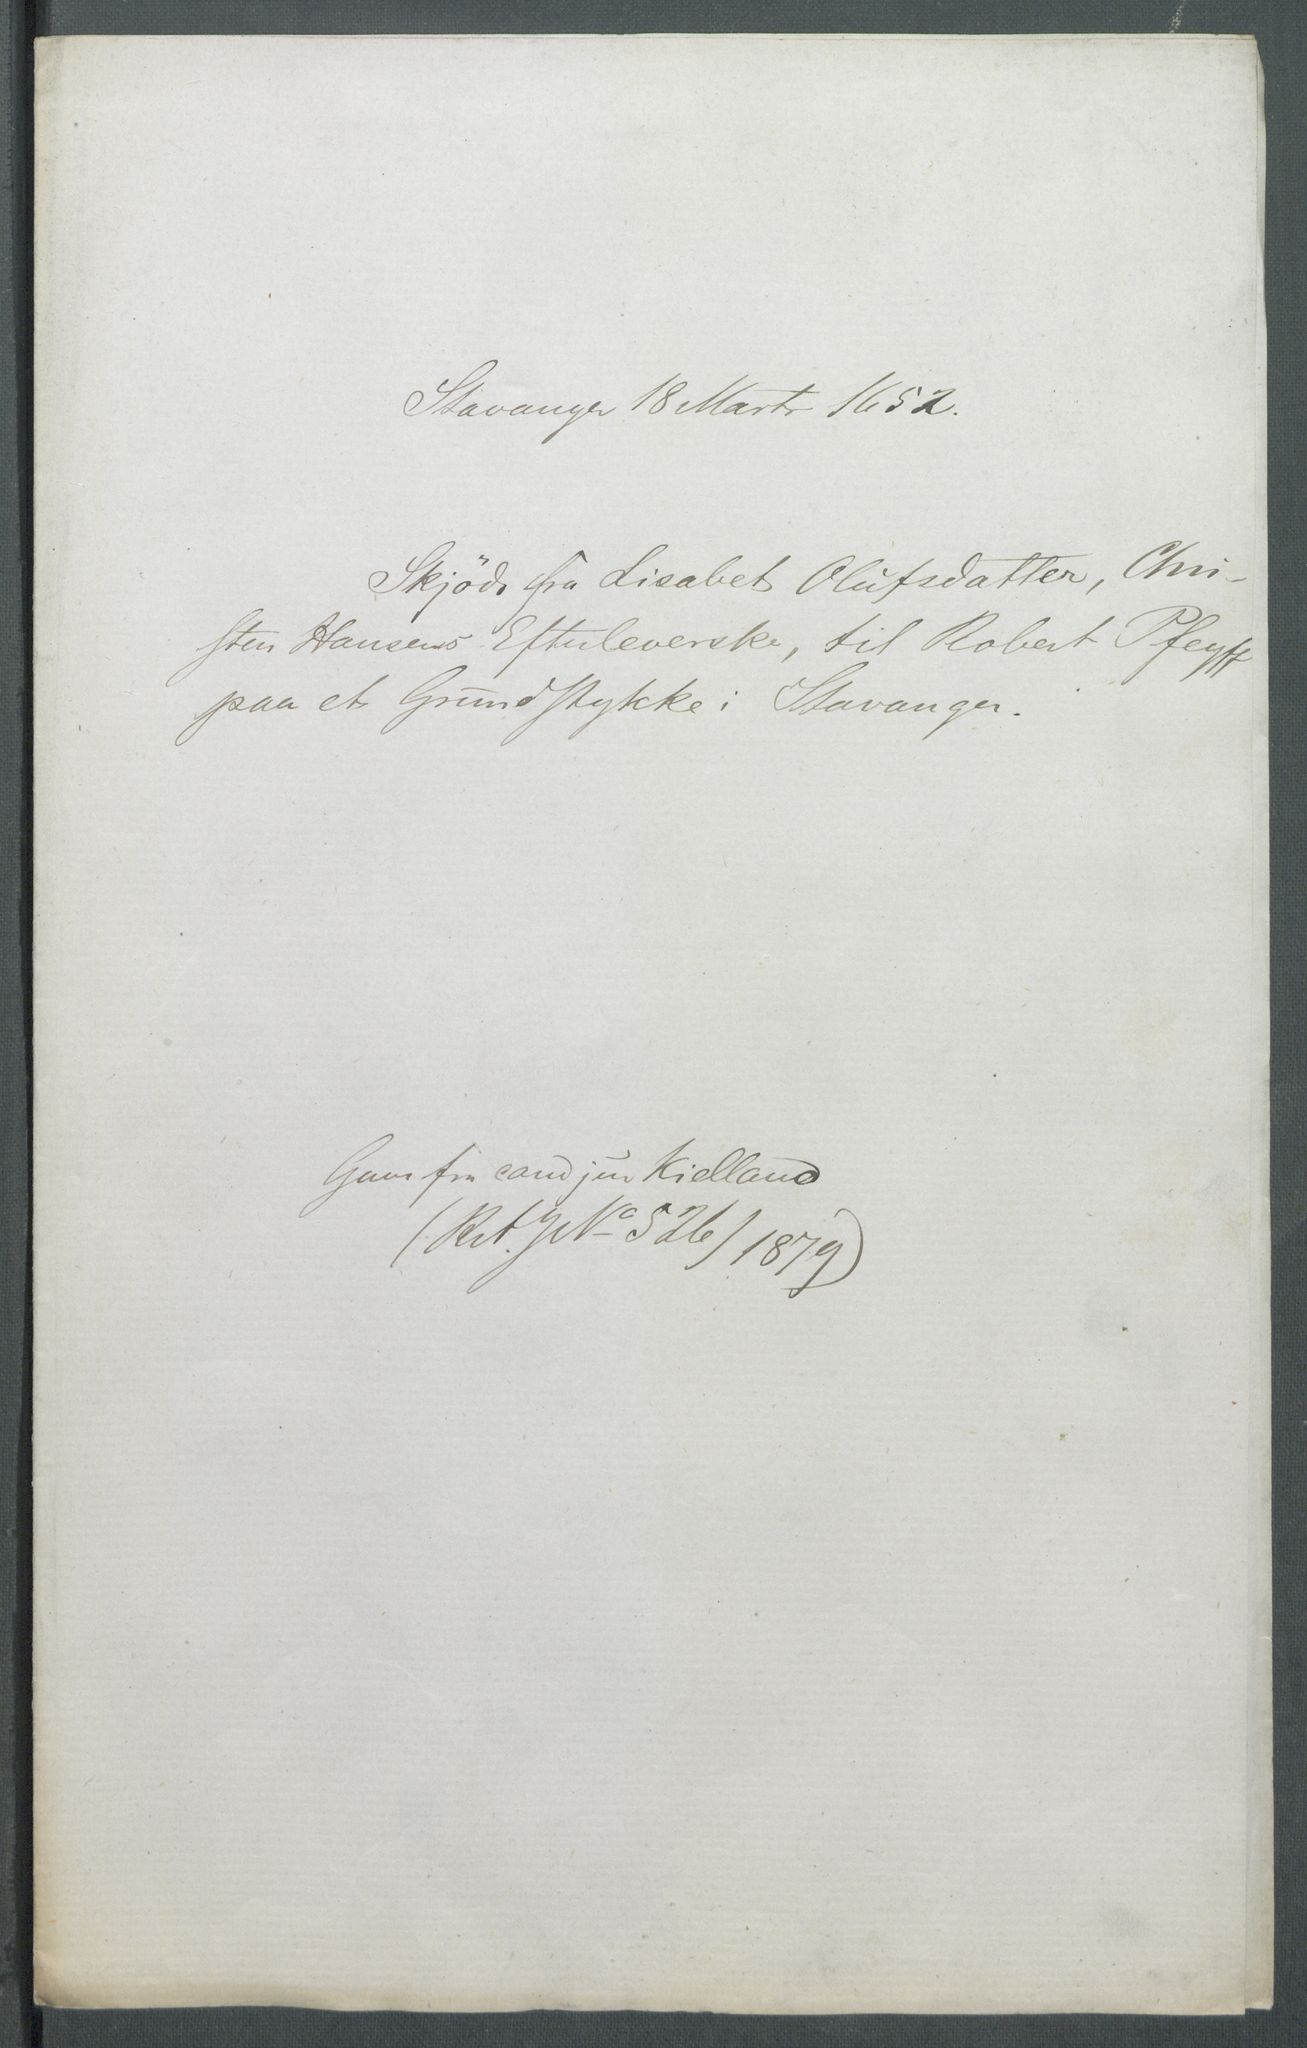 Stavanger 18 Marts 1652.
Skjöde fra Lisabet Olufsdatter, Chri-
sten Hansens Efterleverske, til Robert Pfeyff
paa et Grundstykke i Stavanger.
Gave fra cand jur Kielland
(R.A. J No 526/1879)